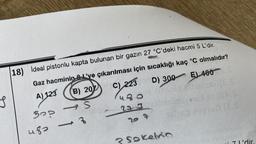 18) İdeal pistonlu kapta bulunan bir gazın 27 °C'deki hacmi 5 L'dir.
Gaz hacminin 8 L'ye çıkarılması için sıcaklığı kaç °C olmalıdır?
A) 123 B) 207 C) 223 D) 300 E) 480
300 → 5
480 → 8
480
207